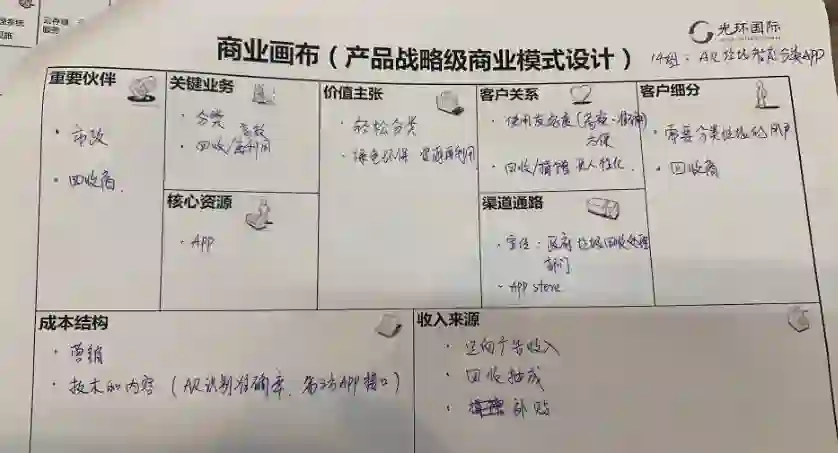 云存储
服务
光环国际
商业画布（产品战略级商业模式设计）
14组：AR垃圾智能分类APP
重要伙伴
· 市政
· 回收商
关键业务
· 分类
高效
· 回收/再利用
核心资源
· APP
价值主张
· 轻松分类
· 绿色环保 资源再利用
客户关系
· 使用友好度（高效、准确）
方便
· 回收/ 更人性化
渠道通路
· 宣传：政府垃圾回收处理
部门
· App store
客户细分
· 需要分类垃圾的用户
· 回收商
成本结构
· 营销
· 技术和内容（AR识别准确率、第三方APP接口）
收入来源
· 定向广告收入
· 回收抽成
· 补贴